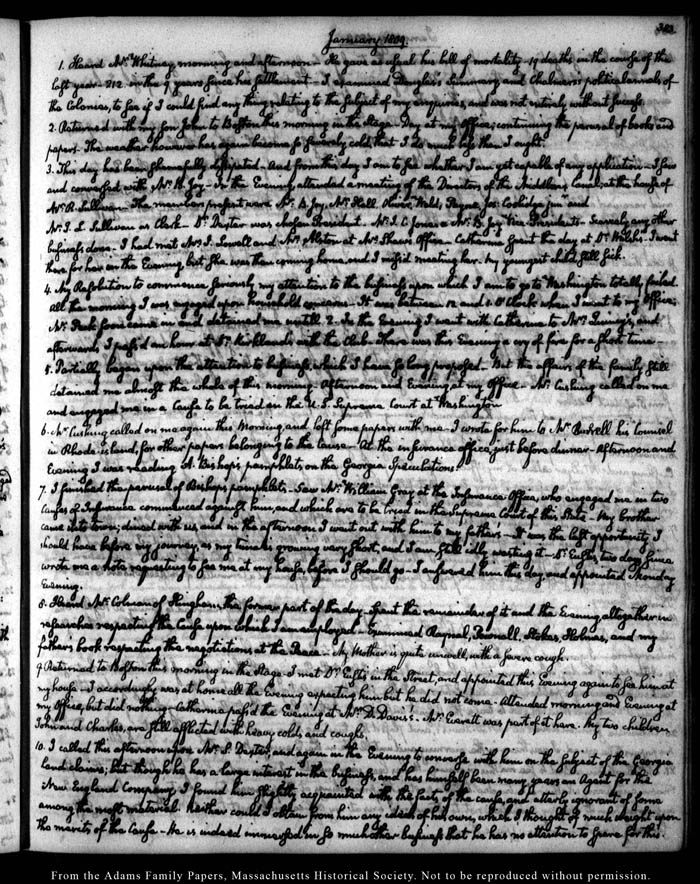 January 1809.
383
1. Heard Mr. Whitney, morning and afternoon — He gave as usual his bill of mortality. 19 deaths in the course of the
last year — 212. in the 9 years since his settlement — I examined Douglas's Summary and Chalmers's political annals of
the Colonies, to see if I could find any thing relating to the subject of my enquiries, and was not entirely without success.
2. Returned with my Son John to Boston this morning in the Stage. Day at my Office; continuing the perusal of books and
papers. The weather however has again become so severely cold, that I do much less than I ought.
3. This day has been shamefully dissipated. And from this day I am to see whether I am yet capable of any application — I saw
and conversed with Mr. B. Joy — In the Evening attended a meeting of the Directors of the Middlesex Canal, at the house of
Mr. R. Sullivan — The members present were Mr. B. Joy, Mr. Hall, Oliver, Welds, Payne, Jos: Coolidge junr. and
Mr. J. L. Sullivan as Clerk — Dr. Dexter was chosen President — Mr. J. C. Jones & Mr. B. Joy Vice-Presidents — Scarcely any other
business done. I had met Mr. J. Lowell and Mr. Alston at Mr. Shaw's Office — Catherine spent the day at Dr. Welsh's — I went
there for her in the Evening but She was then coming home, and I miss'd meeting her. My youngest child still sick.
4. My Resolution to commence seriously my attention to the business upon which I am to go to Washington totally failed.
All the morning I was engaged upon household concerns — It was between 12 and 1 O'Clock when I went to my Office;
Mr. Peck soon came in and detained me untill 2. In the Evening I went with Catherine to Mrs. Quincy's, and
afterwards I pass'd an hour at Dr. Kirkland's with the Club — There was this Evening a cry of fire for a short time —
5. Partially began upon the attention to business, which I have so long proposed — But the affairs of the family still
detained me almost the whole of this morning. Afternoon and Evening at my Office — Mr. Cushing called on me
and engaged me in a Cause to be tried in the U.S. Supreme Court at Washington
6. Mr. Cushing called on me again this Morning and left some papers with me — I wrote for him to Mr. Burrell his Counsel
in Rhode-island, for other papers belonging to the Cause. At the insurance office, just before dinner — Afternoon and
Evening I was reading A. Bishop's pamphlets on the Georgia Speculations.
7. I finished the perusal of Bishop's pamphlets — Saw Mr. William Gray at the Insurance Office, who engaged me in two
Causes of Insurance commenced against him, and which are to be tried in the Supreme Court of this State — My brother
came into town; dined with us, and in the afternoon I went out with him to my father's — It was the last opportunity I
should have before my journey, as my time is growing very short, and I am still idly wasting it — Dr. Eustis two days since
wrote me a note requesting to see me at my house, before I should go — I answered him this day and appointed Monday
Evening.
8. Heard Mr. Colman of Hingham, the former part of the day. Spent the remainder of it and the Evening, altogether in
researches respecting the Cause upon which I am employed — Examined Raynal, Pownall, Stokes, Holmes, and my
father's book respecting the negotiations at the Peace. My Mother is quite unwell, with a severe cough.
9. Returned to Boston this morning in the Stage. I met Dr. Eustis in the Street, and appointed this Evening again to see him at
my house — I accordingly was at home all the Evening expecting him but he did not come. Attended morning and Evening at
my Office, but did nothing. Catherine pass'd the Evening at Mrs. D. Davis's. Mr. Everett was part of it here. My two children
John and Charles, are still afflicted with heavy colds and coughs.
10. I called this afternoon upon Mr. S. Dexter, and again in the Evening to converse with him on the subject of the Georgia
land claims; but though he has a large interest in the business, and has himself been many years an Agent for the
New England Company, I found him slightly acquainted with the facts of the cause, and utterly ignorant of some
among the most material. Neither could I obtain from him any ideas of his own, which I thought of much weight upon
the merits of the Cause — He is indeed immersed in so much other business that he has no attention to spare for this.
From the Adams Family Papers, Massachusetts Historical Society. Not to be reproduced without permission.